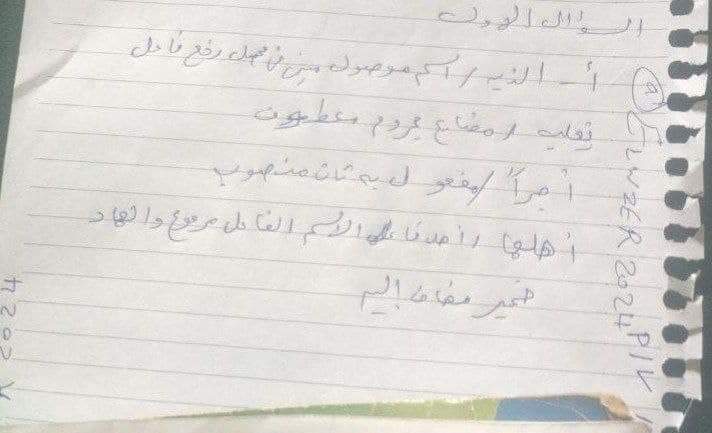 السؤال الاول
أ - الذين / اسم موصول مبني في محل رفع فاعل
يغلب / مضارع مجزوم
أجراً / مفعول به ثان منصوب
أهلها / الاسم الفاعل مرفوع والهاء
ضمير مضاف إليه
WZER 2024 P/V